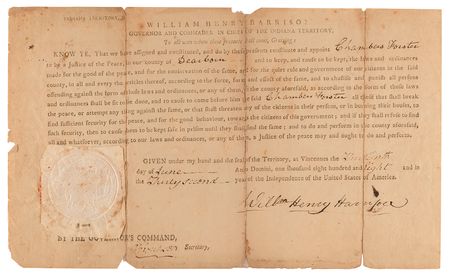 INDIANA TERRITORY,
WILLIAM HENRY HARRISON
GOVERNOR AND COMMANDER IN CHIEF OF THE INDIANA TERRITORY.
To all whom these presents shall come, Greeting:
KNOW YE, That we have assigned and constituted, and do by these presents constitute and appoint Chambers Foster
to be a Justice of the Peace, in our county of Dearborn and to keep, and cause to be kept, the laws and ordinances
made for the good of the peace, and for the conservation of the same, and for the quiet rule and government of our citizens in the said
county, in all and every the articles thereof, according to the force, form and effect of the same, and to chastise and punish all persons
offending against the form of those laws and ordinances, or any of them, in the county aforesaid, as according to the form of those laws
and ordinances shall be fit to be done, and to cause to come before him the said Chambers Foster all those that shall break
the peace, or attempt any thing against the same, or that shall threaten any of the citizens in their persons, or in burning their houses, to
find sufficient security for the peace, and for the good behaviour, towards the citizens of this government; and if they shall refuse to find
such security, then to cause them to be kept safe in prison until they shall find the same; and to do and perform in the county aforesaid,
all and whatsoever, according to our laws and ordinances, or any of them, a Justice of the peace may and ought to do and perform.
GIVEN under my hand and the seal of the Territory, at Vincennes the
day of June Anno Domini, one thousand eight hundred and Eight and in
the Thirty second year of the Independence of the United States of America.
Willm Henry Harrison
BY THE GOVERNOR'S COMMAND,
Secretary.